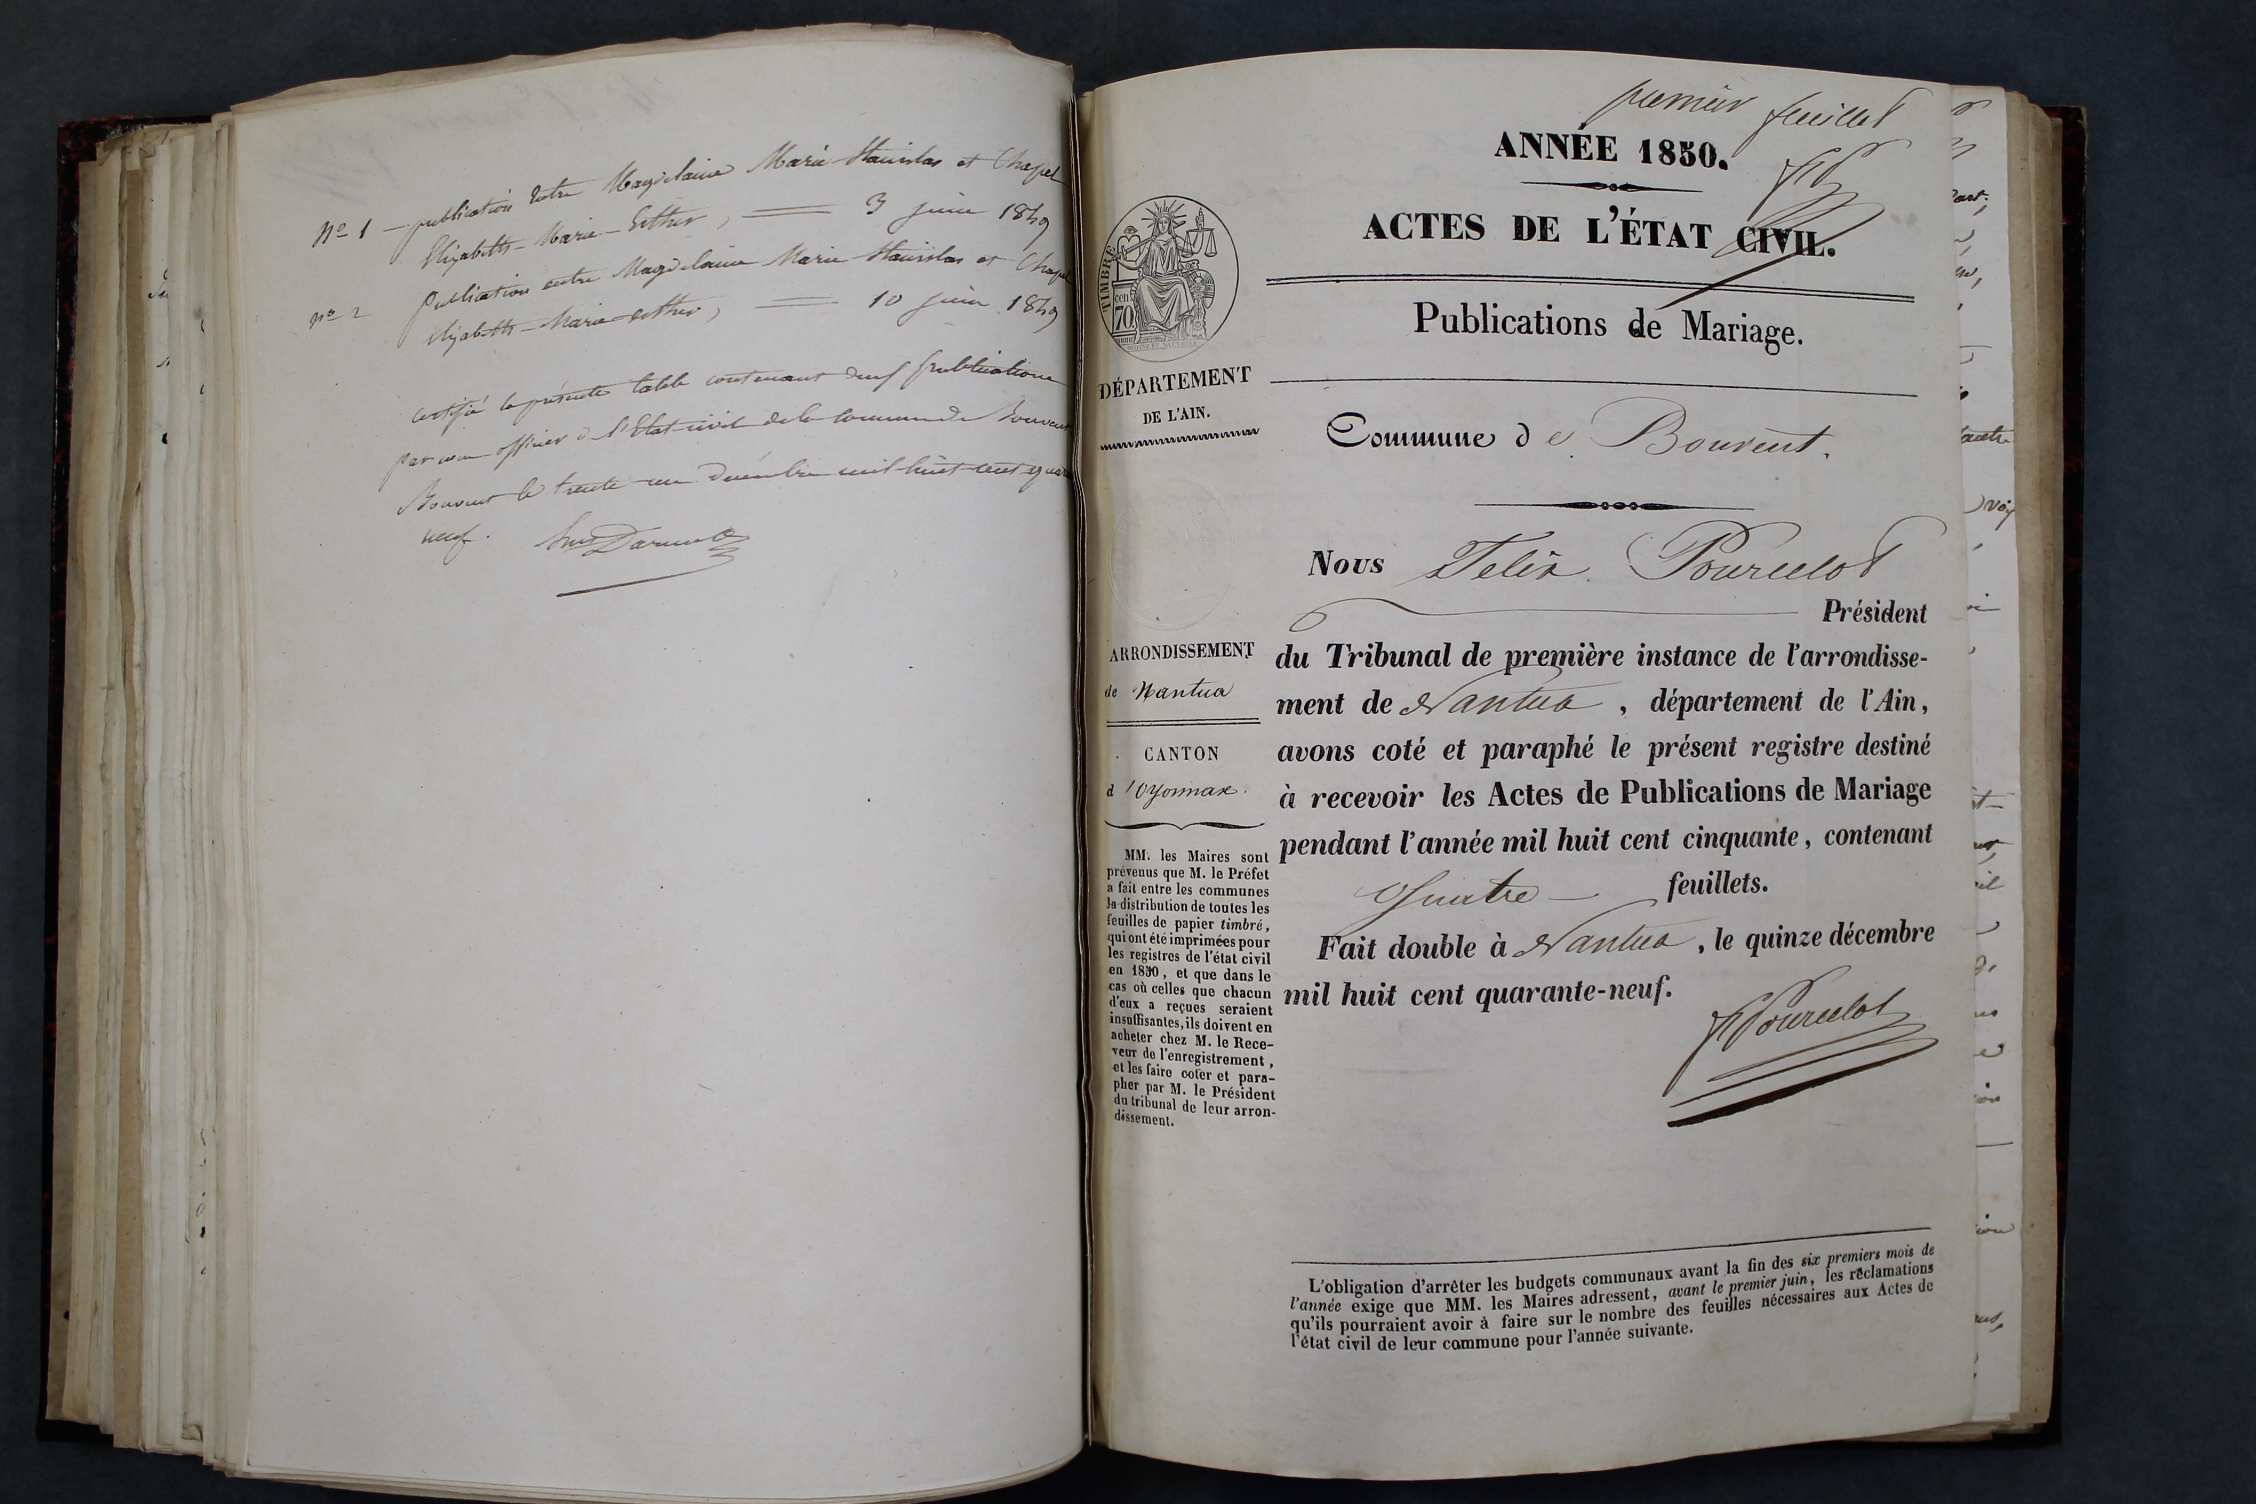 No 1 — publication entre Magdelaine Marie Stanislas et Chapel
Elizabeth-Marie-Esther, 3 juin 1849
No 2 Publication entre Magdelaine Marie Stanislas et Chapel
Elizabeth-Marie-Esther, 10 juin 1849
certifié la présente table contenant deux publications
par nous officier de l'Etat civil de la commune de Bouvent
Bouvent le trente un décembre mil huit cent quarante
neuf.
premier feuillet
ANNÉE 1850.
ACTES DE L'ÉTAT CIVIL.
Publications de Mariage.
TIMBRE
cen
70
DÉPARTEMENT
DE L'AIN.
Commune de Bouvent.
Nous Felix Pourcelot
Président
du Tribunal de première instance de l'arrondisse-
ment de Nantua, département de l'Ain,
avons coté et paraphé le présent registre destiné
à recevoir les Actes de Publications de Mariage
pendant l'année mil huit cent cinquante, contenant
Quatre — feuillets.
Fait double à Nantua, le quinze décembre
mil huit cent quarante-neuf.
FPourcelot
ARRONDISSEMENT
de Nantua
CANTON
d'Oyonnax.
MM. les Maires sont
prévenus que M. le Préfet
a fait entre les communes
la distribution de toutes les
feuilles de papier timbré,
qui ont été imprimées pour
les registres de l'état civil
en 1850, et que dans le
cas où celles que chacun
d'eux a reçues seraient
insuffisantes, ils doivent en
acheter chez M. le Rece-
veur de l'enregistrement,
et les faire coter et para-
pher par M. le Président
du tribunal de leur arron-
dissement.
L'obligation d'arrêter les budgets communaux avant la fin des six premiers mois de
l'année exige que MM. les Maires adressent, avant le premier juin, les réclamations
qu'ils pourraient avoir à faire sur le nombre des feuilles nécessaires aux Actes de
l'état civil de leur commune pour l'année suivante.